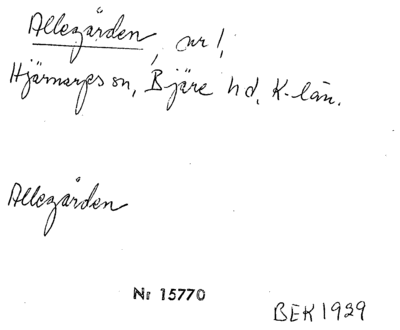 Allegården, nr 1,
Hjärnarps sn, Bjäre hd, K-län.
Allegården
Nr 15770
BEK 1929